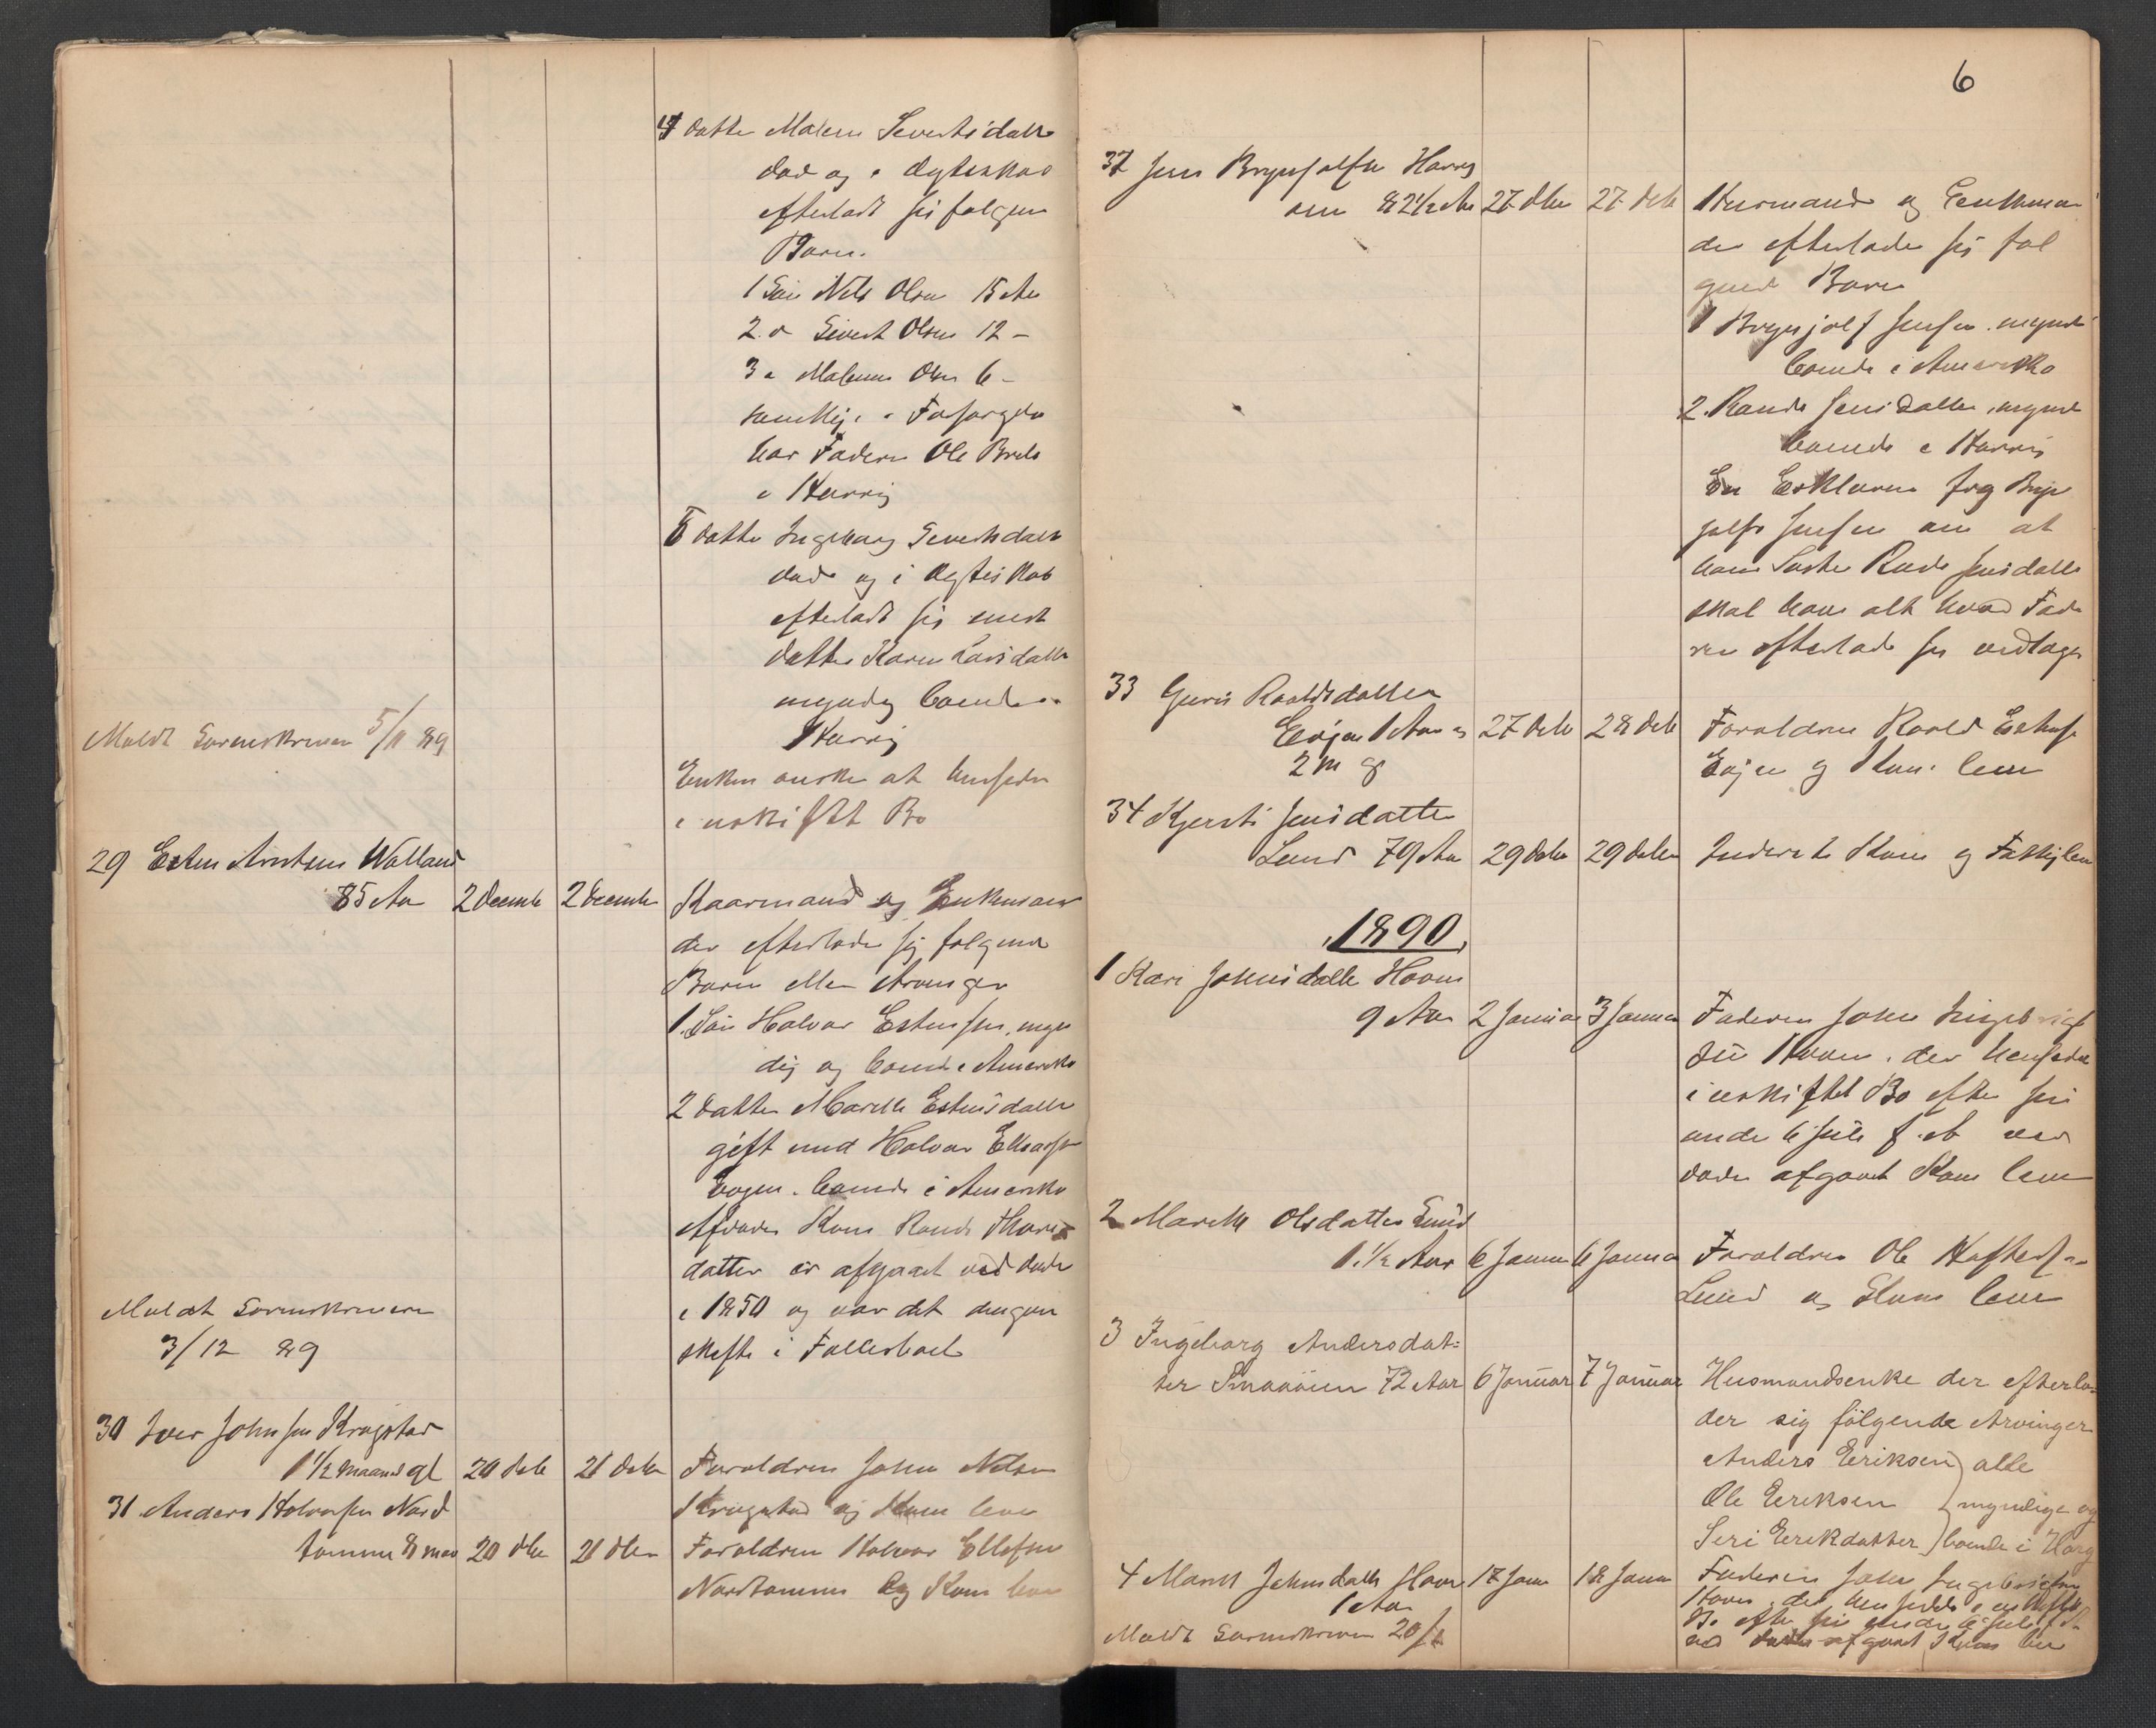 4 datter Malene Severtsdatter
død og i Ægteskab
efterladt sig følgen
Børn.
1 Søn Nils Olsen 15 Aar
2 d Sivert Olsen 12 -
3 d Malenus Olsen 6 -
samtlig Forsørgelse
har Faderen Ole Brede
i Harrig
5 datter Ingeborg Severtsdatter
død og i Ægteskab
efterladt sig
datter Karen Larsdatter
myndig boende i
Harrig
Enken ønsker at hensidde
i uskiftet Bo
Meldt Sorenskriveren 5/11 89
29 Esten Arntsen Wolland
85 Aar 2 December 2 December Kaarmand og Enkemand
der efterlader sig følgende
Børn eller Arvinger
1. Søn Halvor Estensen, myn
dig og boende i Amerika
2 datter Marith Estensdatter
gift med Halvor Ellevsen
boende i Amerika
Afdødes Kone Randi
datter er afgaaet ved døde
i 1850 og var det dengang
skifte i Fællesboet
Meldt Sorenskriveren
3/12 89
30 Iver Johnsen Krogstad
1 1/2 Maaned gl 20 Dcbr 21 Dcbr Forældrene John Nilsen
Krogstad og Kone lever
31 Anders Halvorsen Nord
tømme 8 mdr 20 dbr 21 dbr Forældrene Halvor Ellefsen
Nordtømme og Kone lever
6
32 Jens Brynjolfsen Harrig
82 1/2 Aar 27 dbr 27 dcb Husmand og Enkeman
der efterlader sig føl
gende Børn
1 Brynjolf Jensen myndi
boende i Amerika
2. Randi Jensdatter myndi
boende i Harrig
En Erklæring fra Bryn
jolf Jensen om at
hans Søster Randi Jensdatter
skal have alt hvad Fade
ren efterlader sig vedtages
33 Guri Roaldsdatter
Evjen 1 Aar og 27 dcb 28 dcb Forældrene Roald Estensen
2 M gl Evjen og Kone lever
34 Kjersti Jensdatter
Lund 79 Aar 29 dcbr 29 dcbr Inderste Kone og Fattiglem
1890
1 Kari Johnsdatter Hoven
9 Aar 2 Januar 3 Januar Faderen John Ingebrigt
sen Hoven, der hensidder
i uskiftet Bo efter sin
unde 6 Juli f. A ved
døden afgaaet Kone lever
2 Marith Olsdatter Lund
1 1/2 Aar 6 Januar 6 Januar Forældrene Ole
Lund og Kone lever
3 Ingeborg Andersdat=
ter Smaaøien 72 Aar 6 Januar 7 Januar Husmandsenke der efterla
der sig følgende Arvinger
Anders Eriksen } alle
Ole Eriksen } myndige og
Seri Erikdatter } boende i Harrig
4 Marit Johnsdatter Hoven 17 Janu 18 Janu Faderen John Ingebrigtsen
1 Aar Hoven, der hensidder i uskiftet
Bo efter sin under 6 Juli f A
Meldt Sorenskriveren 20/1 ved døden afgaaet Kone lever